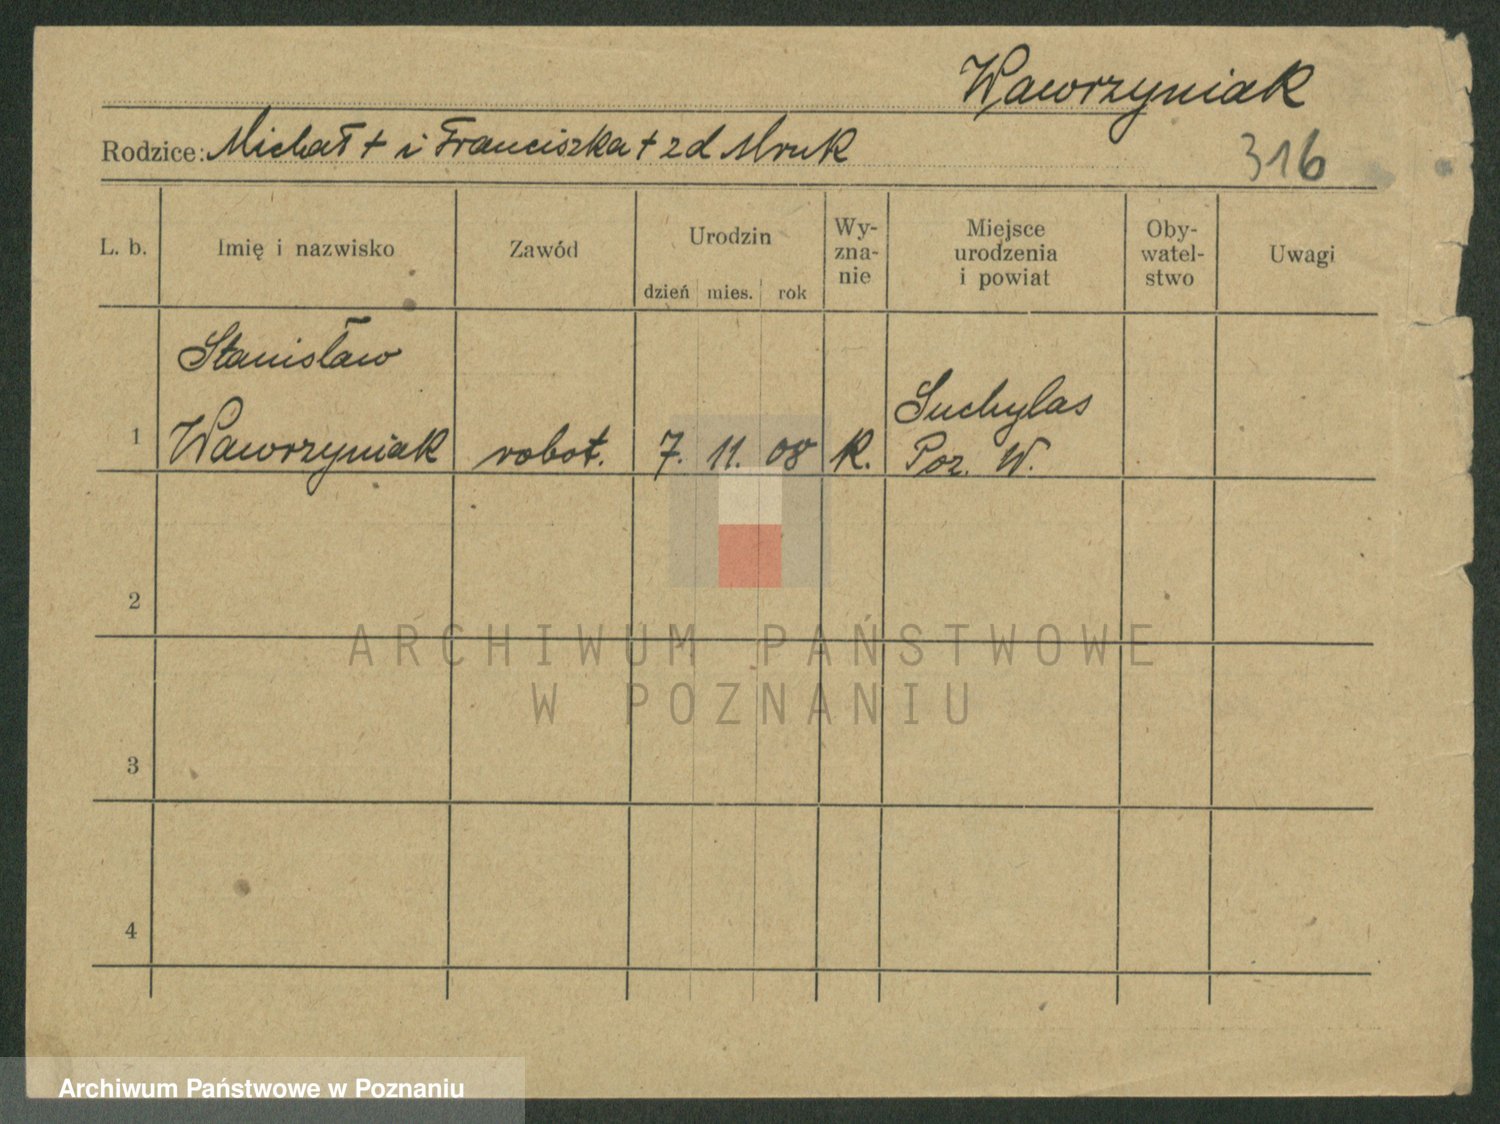 Wawrzyniak
Rodzice: Michał + i Franciszka + zd Mruk
316
L. b. Imię i nazwisko Zawód Urodzin Wy- Miejsce Oby- Uwagi
zna- urodzenia watel-
nie i powiat stwo
dzień mies. rok
Stanisław
1 Wawrzyniak robot. 7. 11. 08 k. Suchylas
Poz. W.
2
ARCHIWUM PAŃSTWOWE
W POZNANIU
3
4
Archiwum Państwowe w Poznaniu